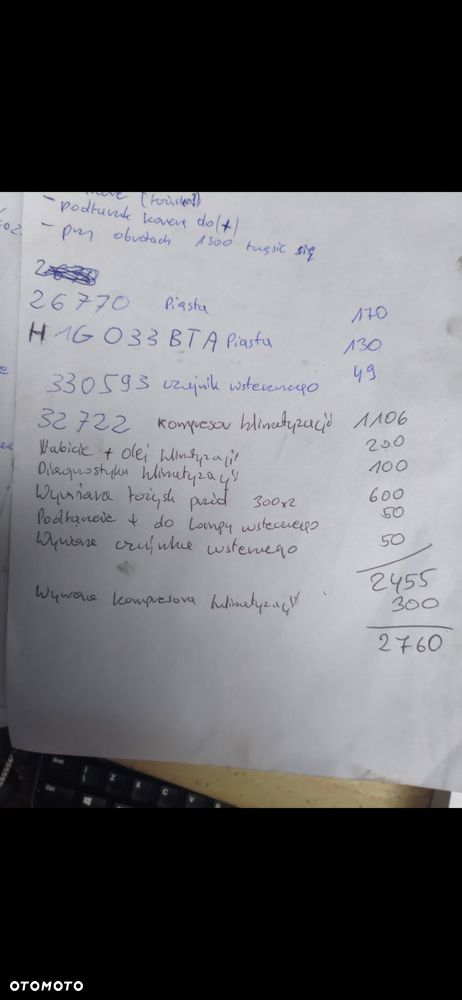 (łożyska)
- podłącznik kovera do (+)
- przy obrotach 1300 trzęsie się
26770 Piasta 170
H1G033BTA Piasta 130
330593 czujnik wstecznego 49
32722 kompresor klimatyzacji 1106
Nabicie + olej klimatyzacji 200
Diagnostyka klimatyzacji 100
Wymiana łożysk przód 300x2 600
Podłączenie + do lampy wstecznego 50
Wymiana czujnika wstecznego 50
2455
Wymiana kompresora klimatyzacji 300
2760
Ctrl
Z
X
C
V
B
N
OTOMOTO